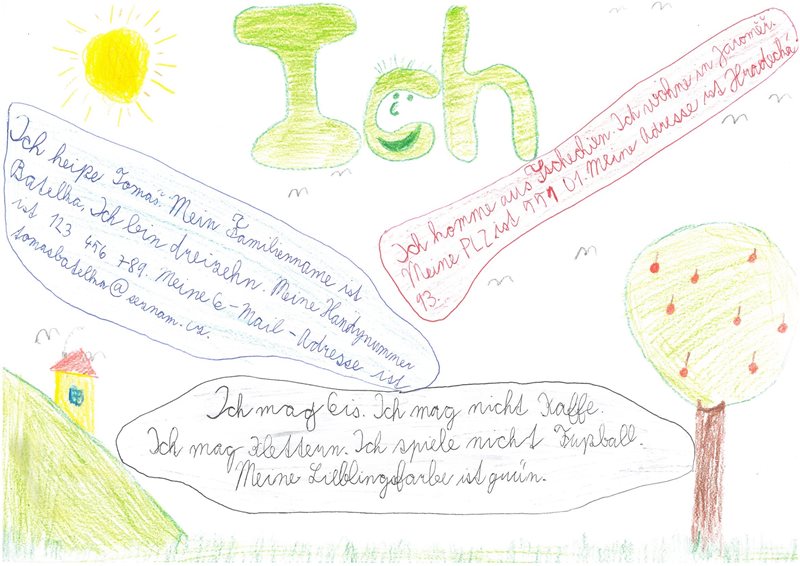 Ich
Ich heiße Tomaš. Mein Familienname ist
Batelka, Ich bin dreizehn. Meine Handynummer
ist 123 456 789. Meine E-Mail-Adresse ist
tomasbatelka@seznam.cz.
Ich komme aus Tschechien. Ich wohne in Jaroměř.
Meine PLZ ist 551 01. Meine Adresse ist Hradecká
93.
Ich mag Eis. Ich mag nicht Kaffe.
Ich mag Klettern. Ich spiele nicht Fußball.
Meine Lieblingsfarbe ist grün.